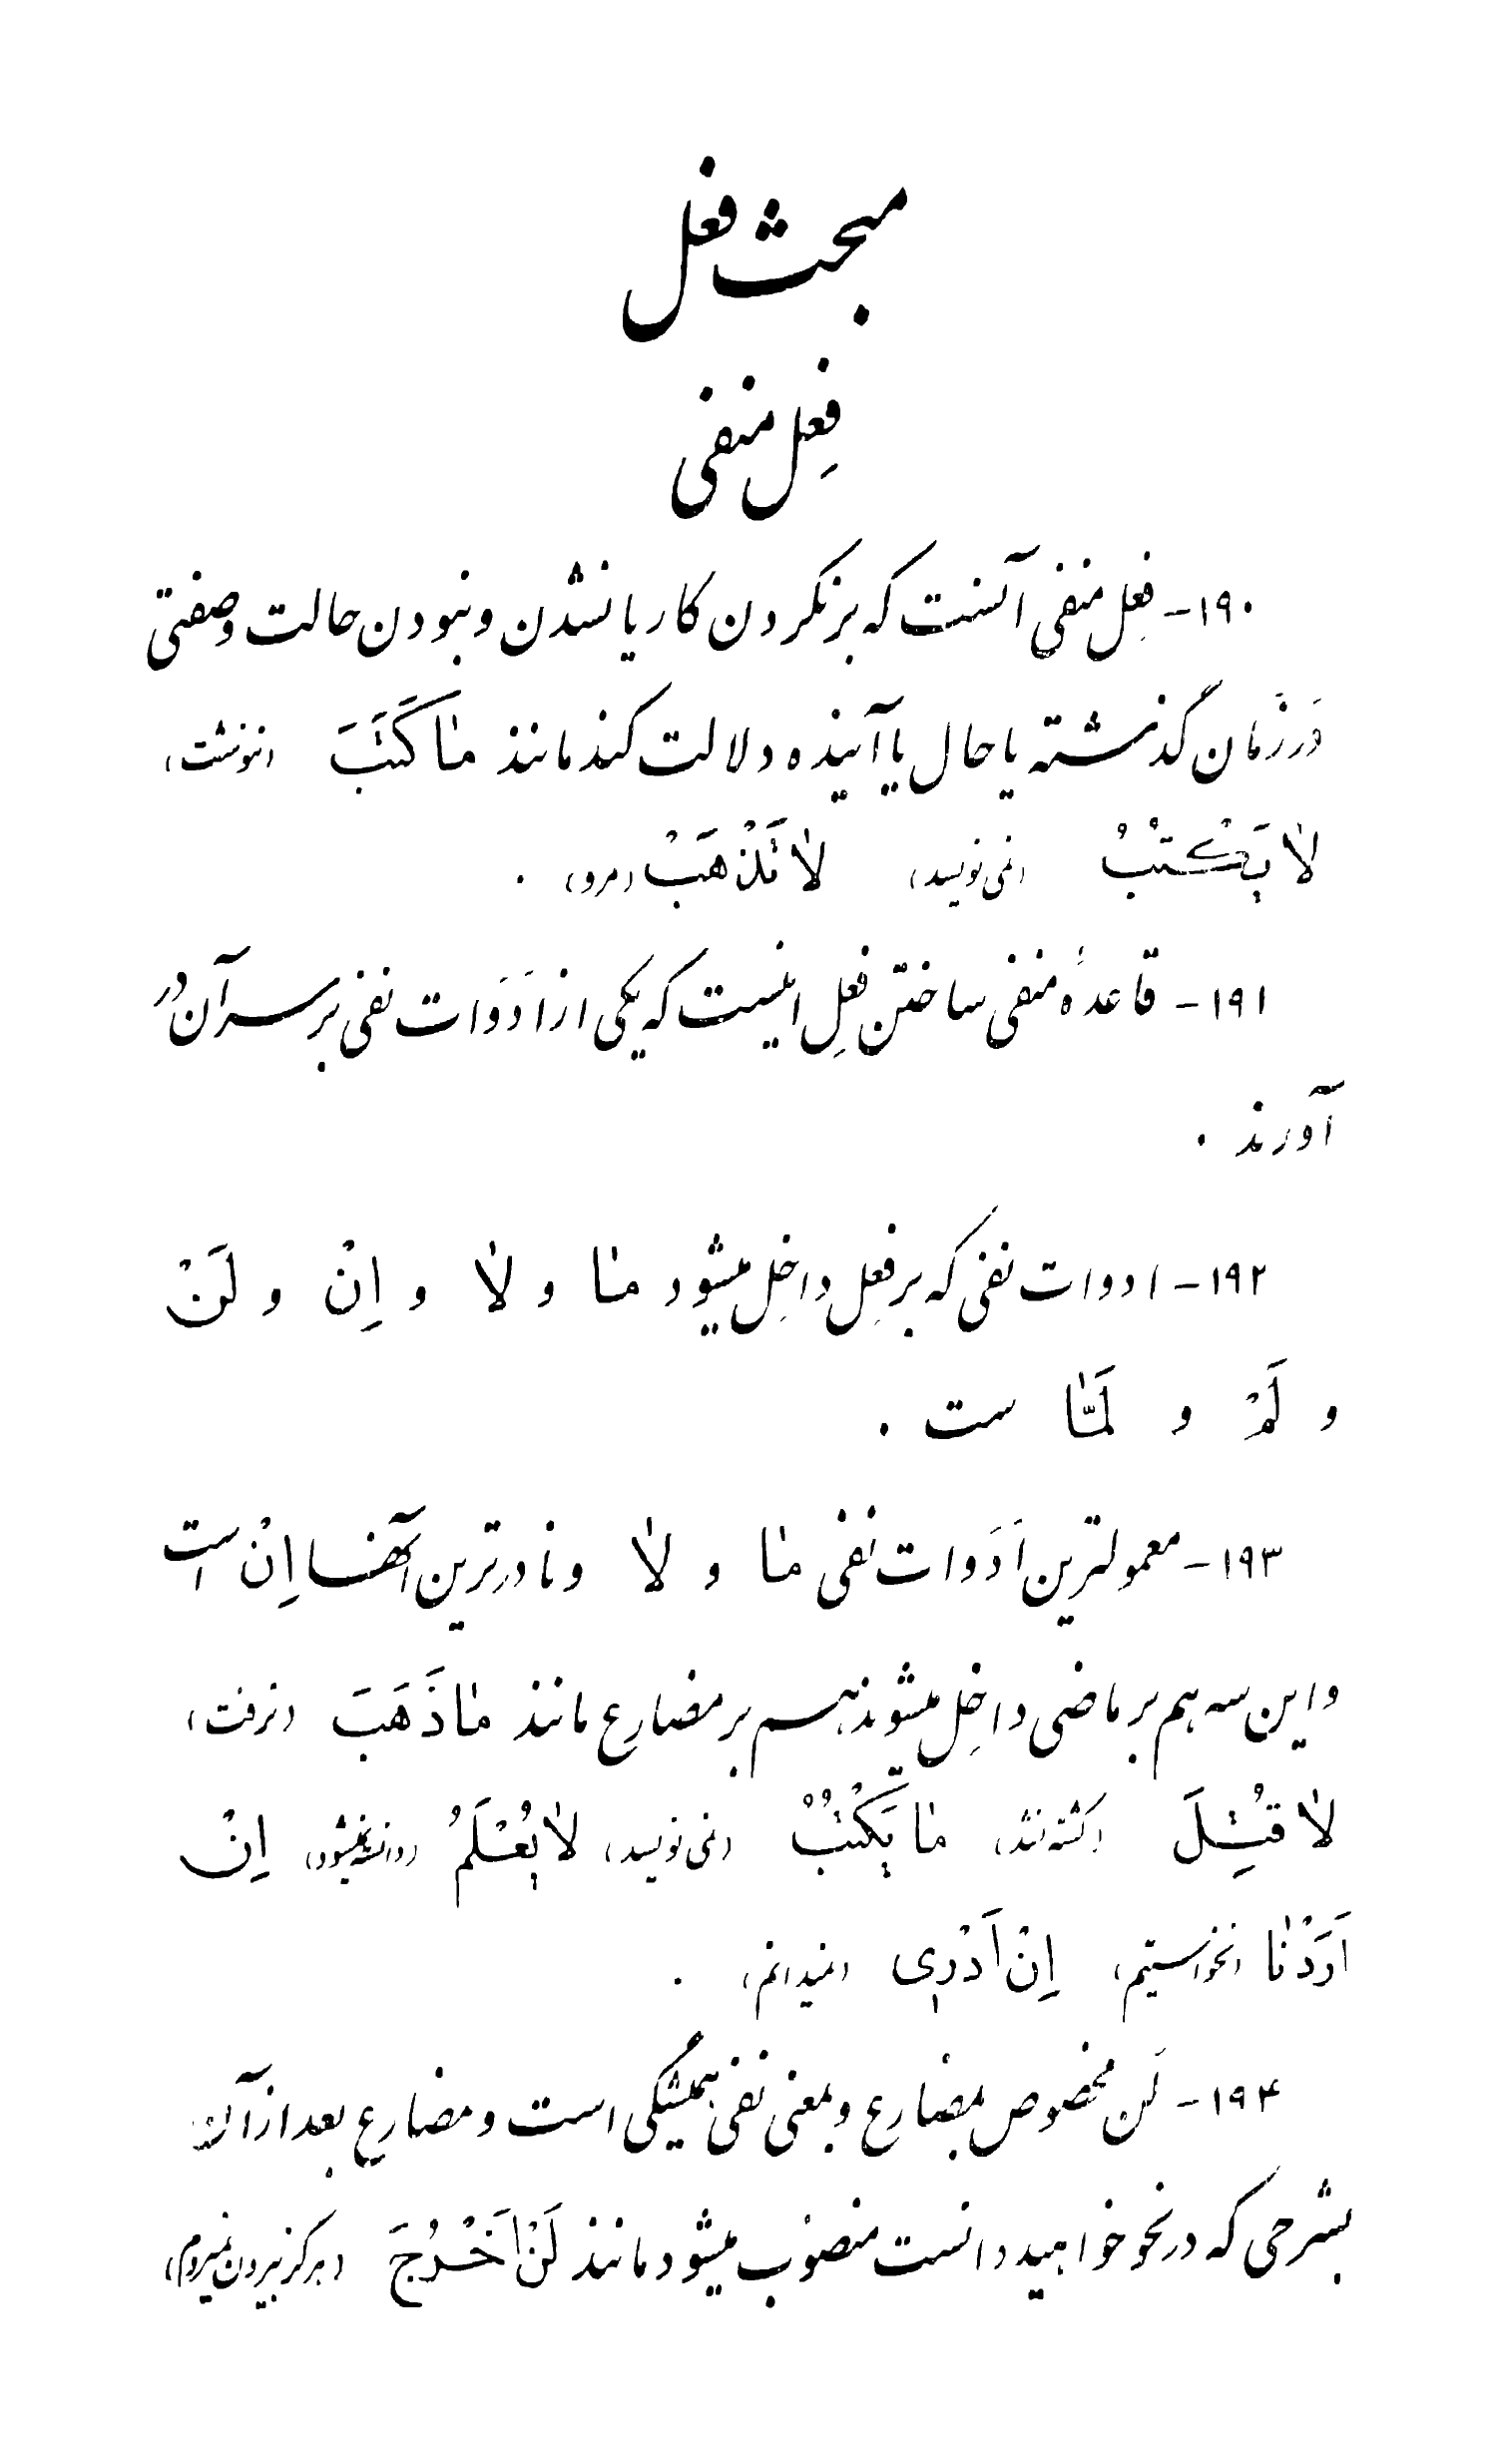 مبحث فعل
فِعل منفی
۱۹۰- فعِل منفی آنست که بر نکردن کار یا نشدن و نبودن حالت و صفتی
در زمان گذشته یا حال یا آینده دلالت کند مانند مٰا کَتَبَ (ننوشت)
لاٰ یَکْتُبُ (نمی‌نویسد) لاٰ تَذْهَبْ (مرو) .
۱۹۱- قاعدهٔ منفی ساختن فعلِ اینست که یکی از اَدَوَات نفی بر سر آن در
آورند .
۱۹۲- ادوات نفی که بر فعِل داخِل میشود مٰا و لاٰ و اِنْ و لَنْ
و لَمْ و لَمّٰا ست .
۱۹۳- معمولترین اَدَوات نفی مٰا و لاٰ و نادرترین آنها اِنْ است
و این سه هم بر ماضی داخِل میشوند هم بر مضارع مانند مٰا ذَهَبَ (نرفت)
لاٰ قُتِلَ (کشته نشد) مٰا یَکْتُبُ (نمی‌نویسد) لاٰ یُعْلَمُ (دانسته نمیشود) اِنْ
اَرَدْنٰا (نخواستیم) اِنْ اَدْرٖی (نمیدانم) .
۱۹۴- لَن مخصوص بمضارع و بمعنی نفی همیشگی است و مضارعِ بعد از آن
بشرحی که در نحو خواهید دانست منصوب میشود مانند لَنْ اَخْرُجَ (هرگز بیرون نمیروم)